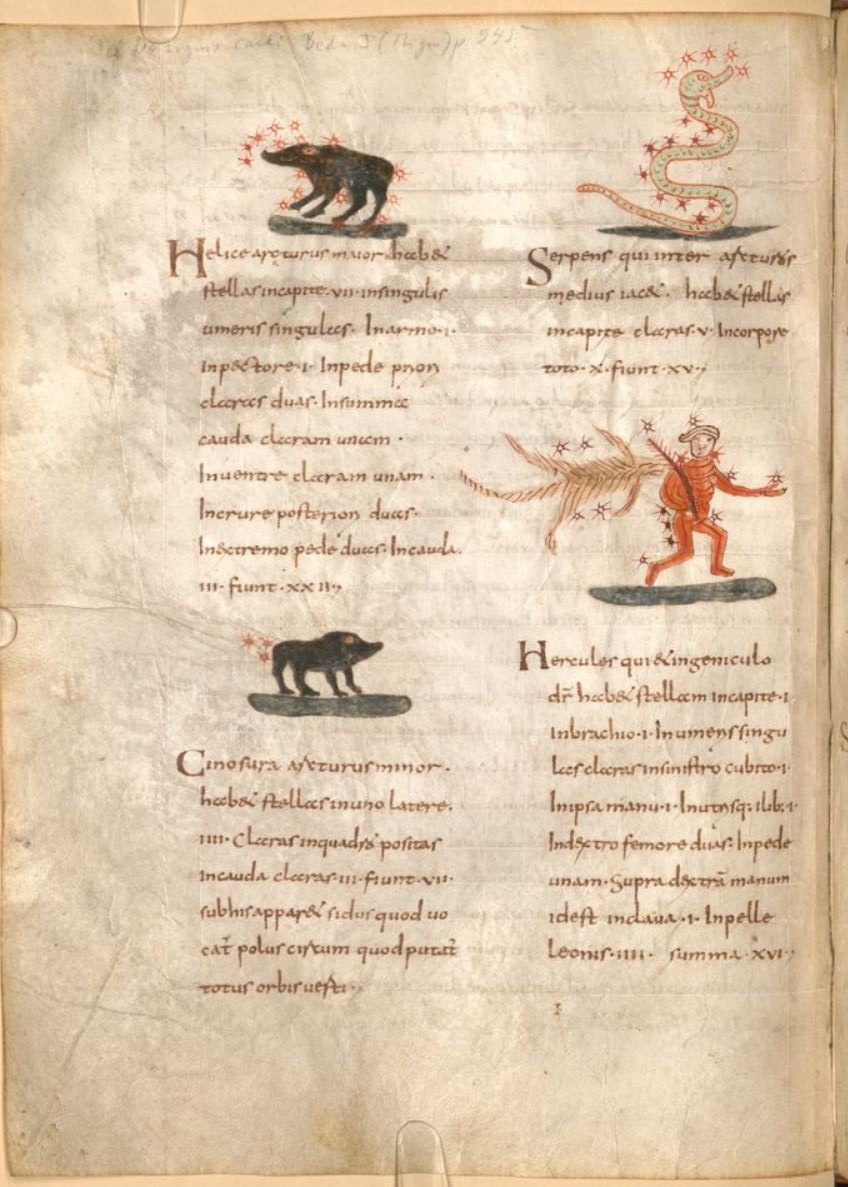 Helice arcturus maior habet
stellas in capite · vii · in singulis
umeris singulas · In armo · i ·
In pectore · i · In pede priori
claras duas · In summa
cauda claram unam ·
In uentre claram unam ·
In crure posteriori duas ·
In extremo pede duas · In cauda ·
iii · fiunt · xxii ·
Cinosura arcturus minor ·
habet stellas in uno latere ·
iiii · Claras in quadro positas
in cauda claras · iii · fiunt · vii ·
sub his apparet sidus quod uo
cat polus circum quod putat
totus orbis uerti ·
Serpens qui inter arcturos
medius iacet · habet stellas
in capite claras · v · In corpore
toto · x · fiunt · xv ·
Hercules qui et ingeniculo
dr habet stellam in capite · i
In brachio · i · In umeris singu
las claras in sinistro cubito · i ·
In ipsa manu · i · In utrisq: ilib: i ·
In dextro femore duas · In pede
unam · Supra dextrā manum
id est in claua · i · In pelle
Leonis · iiii · summa · xvi ·